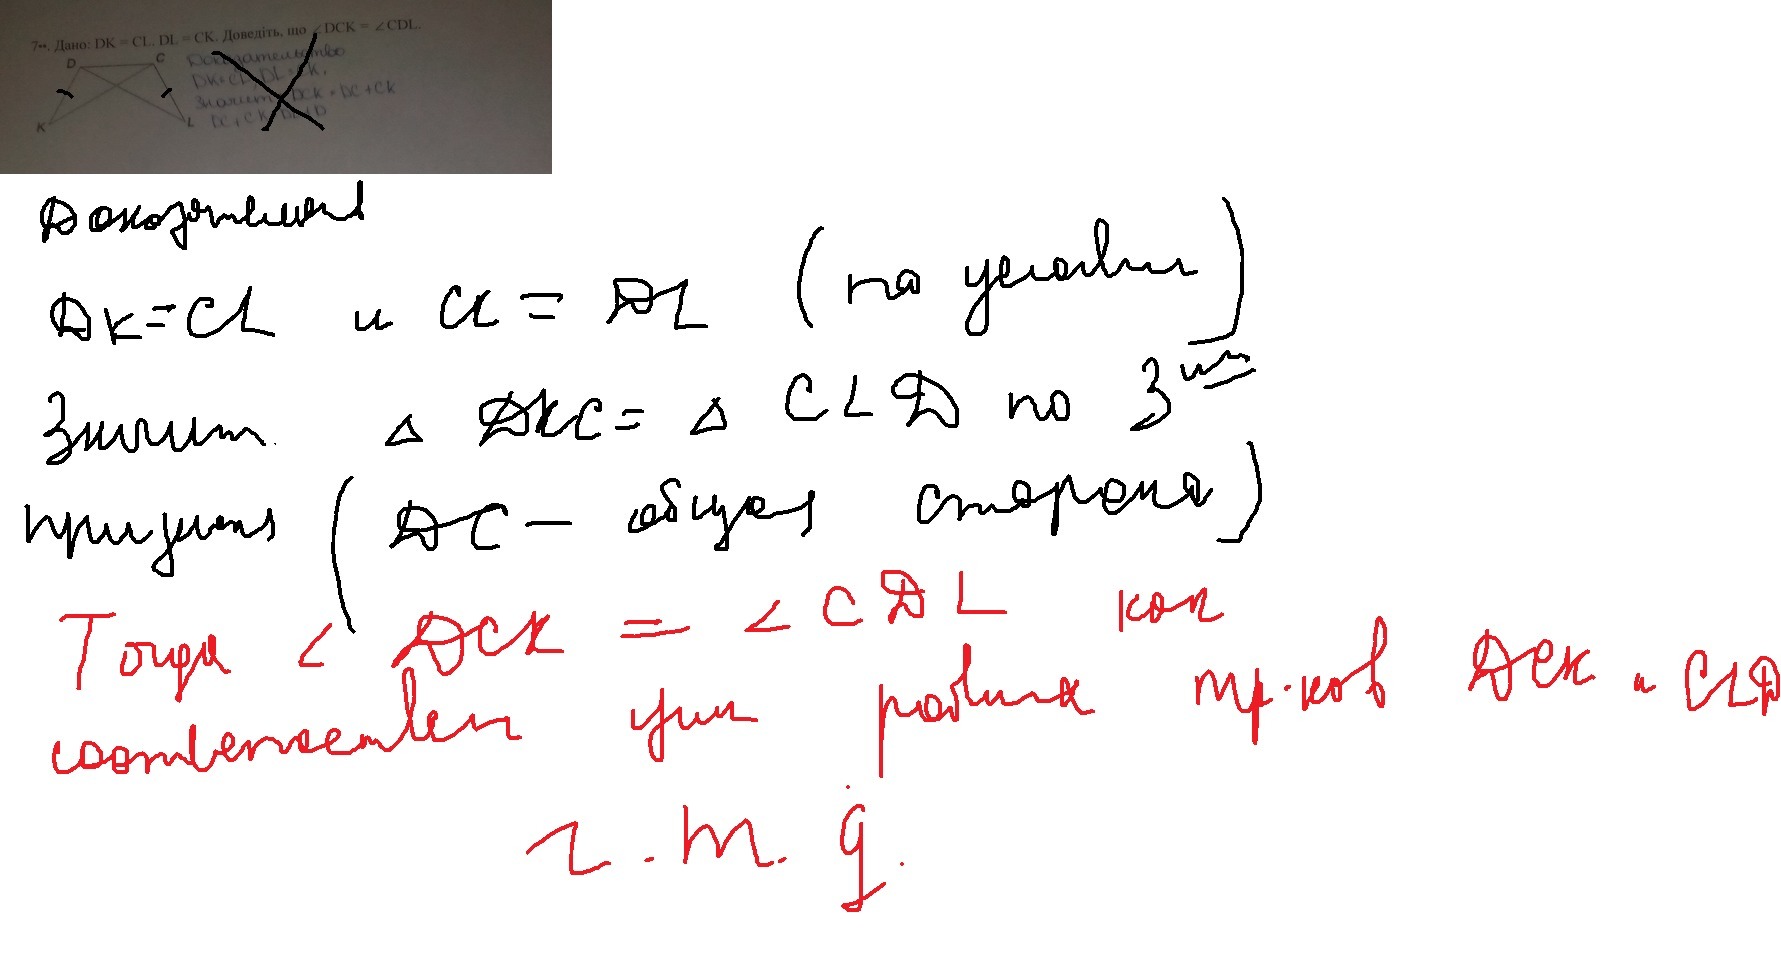 7••. Дано: DK = CL, DL = CK. Доведіть, що ∠DCK = ∠CDL.
D C
K L
Доказательство
DK=CL, DL=CK,
Значит DCK = DC+CK
DC+CK
Доказательств
DK=CL и CK = DL (по условию)
Значит △ DKC = △ CLD по 3му
признака (DC – общая сторона)
Тогда ∠ DCK = ∠ CDL как
соответствен углы равных тр-ков DCK и CLD
ч.т.д.